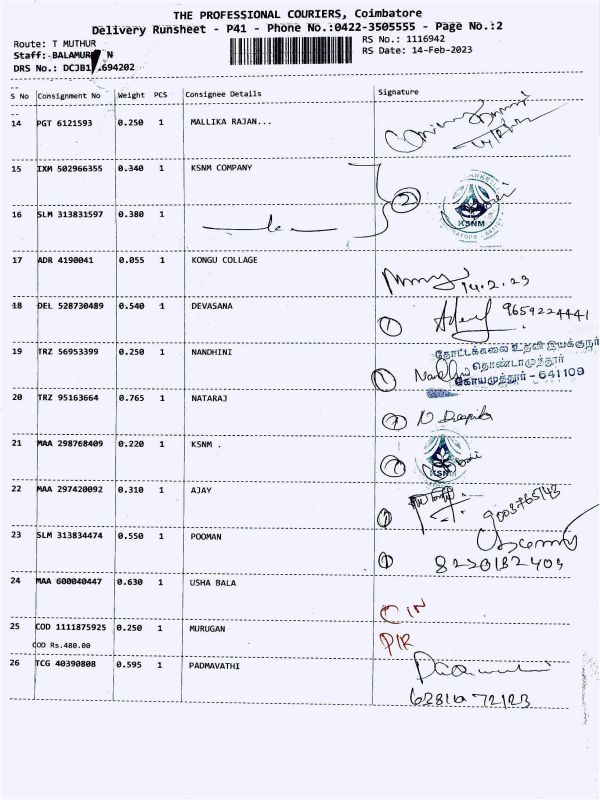 THE PROFESSIONAL COURIERS, Coimbatore
Delivery Runsheet - P41 - Phone No.:0422-3505555 - Page No.:2
Route: T MUTHUR
RS No.: 1116942
Staff: N
RS Date: 14-Feb-2023
DRS No.:
S No Consignment No Weight PCS Consignee Details Signature
14 PGT 6121593 0.250 1 MALLIKA RAJAN...
15 IXM 502966355 0.340 1 KSNM COMPANY
2
16 SLM 313831597 0.380 1
KSNM
17 ADR 4190041 0.055 1 KONGU COLLAGE
14.2.23
18 DEL 528730489 0.540 1 DEVASANA
1 9659224441
19 TRZ 56953399 0.250 1 NANDHINI
தோட்டக்கலை உதவி இயக்குநர்
தொண்டாமுத்தூர்
1 Nandhini கோயமுத்தூர் - 641109
20 TRZ 95163664 0.765 1 NATARAJ
21 MAA 298768409 0.220 1 KSNM .
KSNM
22 MAA 297420092 0.310 1 AJAY
1
23 SLM 313834474 0.550 1 POOMAN
1
24 MAA 600040447 0.630 1 USHA BALA
CIN
25 COD 1111875925 0.250 1 MURUGAN
PIR
COD Rs.480.00
26 TCG 40390808 0.595 1 PADMAVATHI